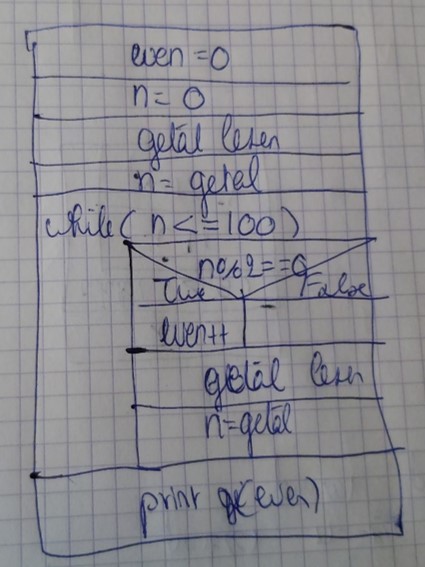 even = 0
n = 0
getal lezen
n = getal
while( n <= 100 )
n%2 == 0
True False
even++
getal lezen
n = getal
print (even)